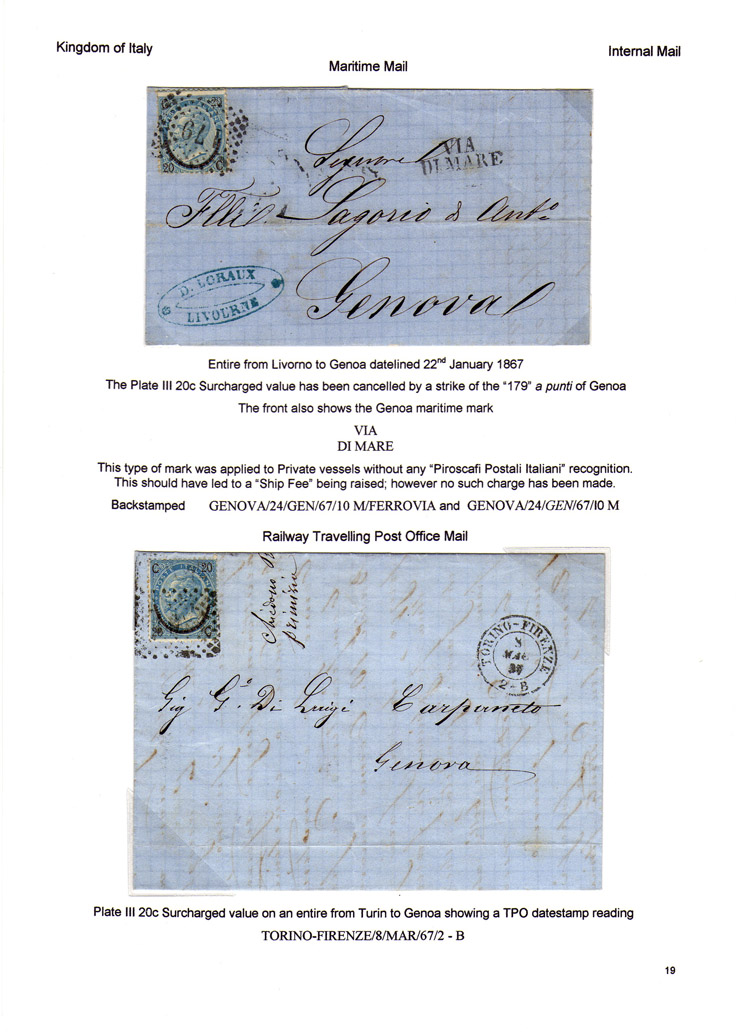 Kingdom of Italy
Internal Mail
Maritime Mail
20
20 C
79
VIA
DI MARE
Signori
Flli Lagorio & Anto
Genova
D. LORAUX
LIVOURNE
Entire from Livorno to Genoa datelined 22nd January 1867
The Plate III 20c Surcharged value has been cancelled by a strike of the "179" a punti of Genoa
The front also shows the Genoa maritime mark
VIA
DI MARE
This type of mark was applied to Private vessels without any "Piroscafi Postali Italiani" recognition.
This should have led to a "Ship Fee" being raised; however no such charge has been made.
Backstamped GENOVA/24/GEN/67/10 M/FERROVIA and GENOVA/24/GEN/67/I0 M
Railway Travelling Post Office Mail
C 20
TORINO-FIRENZE
8
MAR
67
2 - B
Sig G. Di Luigi Carpaneto
Genova
Plate III 20c Surcharged value on an entire from Turin to Genoa showing a TPO datestamp reading
TORINO-FIRENZE/8/MAR/67/2 - B
19